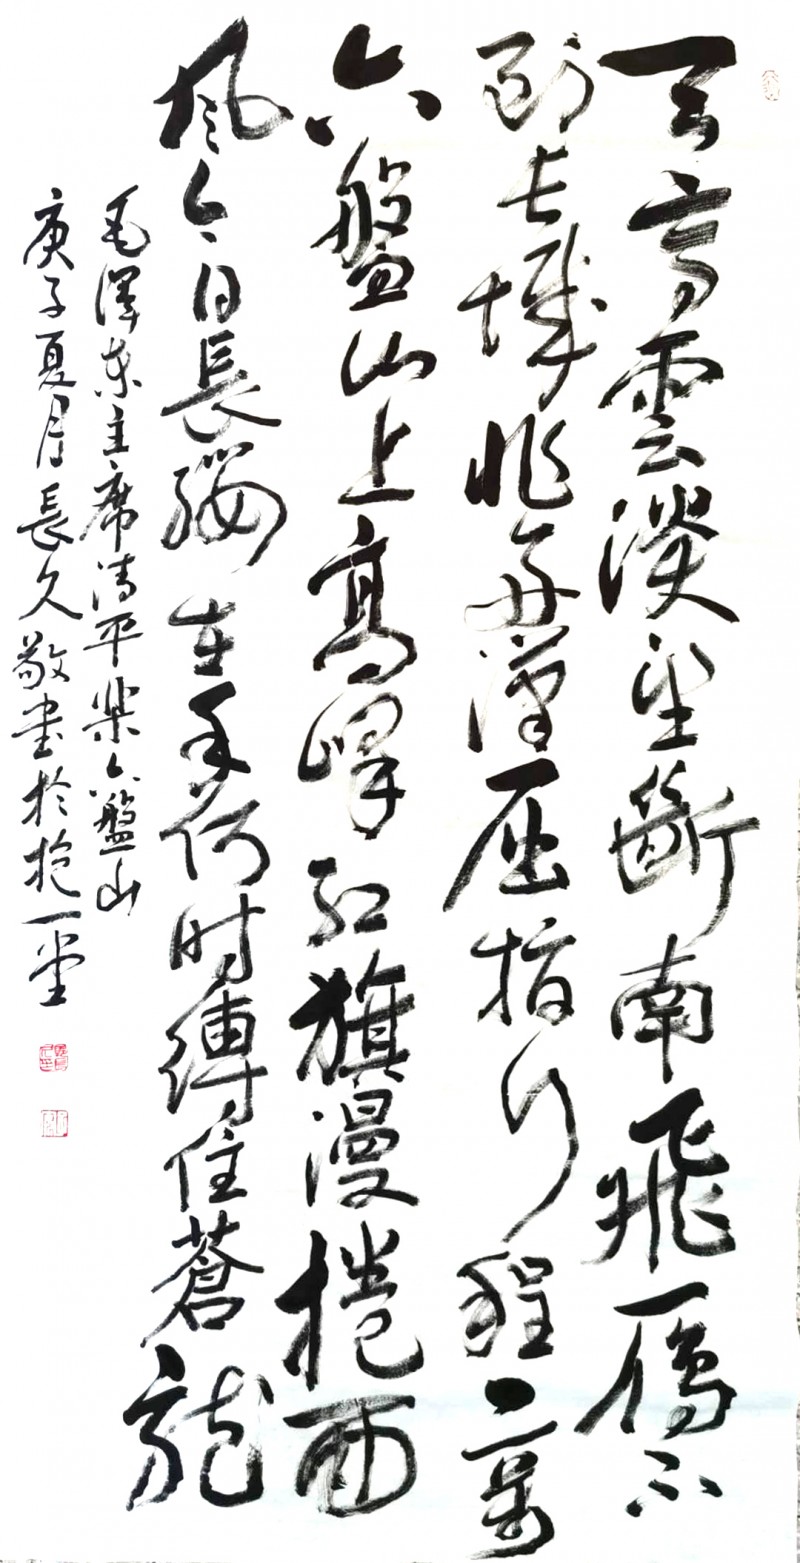 天高雲淡望斷南飛雁不
到长城非好漢屈指行程二萬
六盤山上高峰红旗漫捲西
风今日長缨在手何时縛住蒼龍
毛澤东主席清平樂六盤山
庚子夏月長久敬书於抱一堂